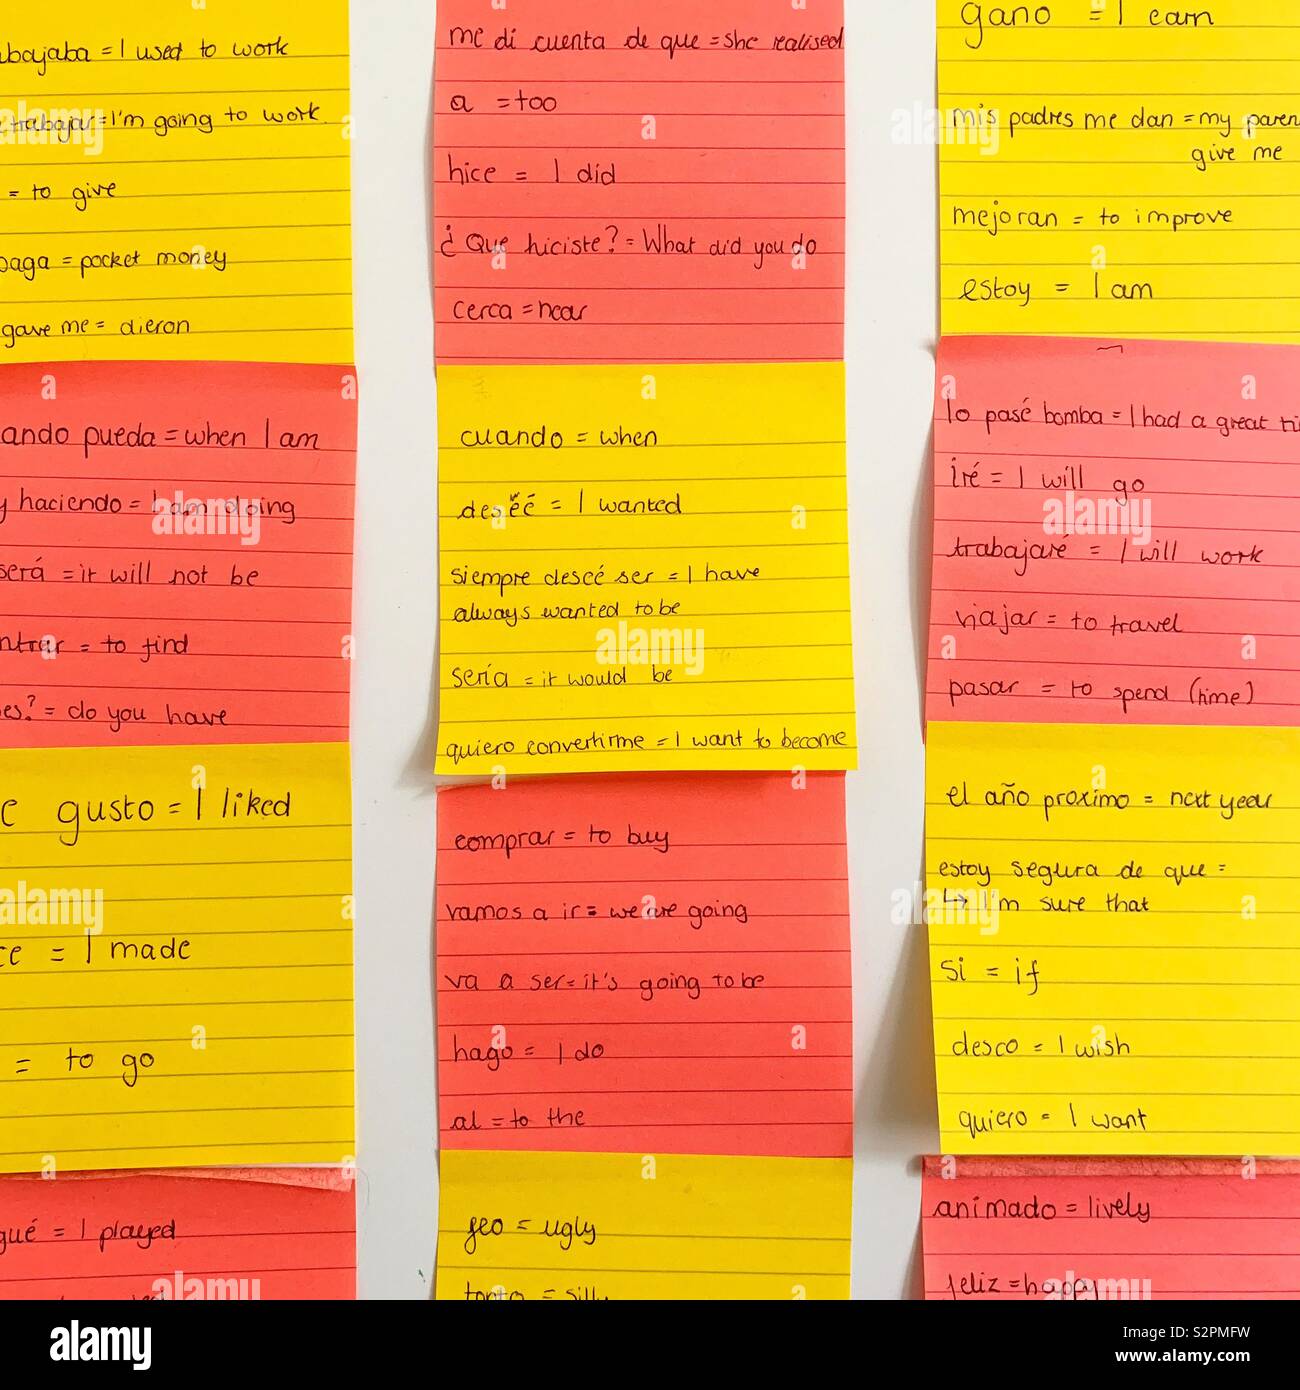 abajaba = I used to work
trabajar = I'm going to work
= to give
paga = pocket money
gave me = dieron
ando pueda = when I am
y haciendo = I am doing
será = it will not be
ntrar = to find
es? = do you have
e gusto = I liked
ce = I made
= to go
gué = I played
me di cuenta de que = she realised
a = too
hice = I did
¿Que hiciste? = What did you do
cerca = near
cuando = when
I wanted
siempre descé ser = I have
always wanted to be
sería = it would be
quiero convertirme = I want to become
comprar = to buy
vamos a ir = we are going
va a ser = it's going to be
hago = I do
al = to the
feo = ugly
tonto = silly
gano = I earn
mis padres me dan = my paren
give me
mejoran = to improve
estoy = I am
lo pasé bomba = I had a great ti
iré = I will go
trabajaré = I will work
viajar = to travel
pasar = to spend (time)
el año proximo = next year
estoy segura de que =
↳ I'm sure that
si = if
desco = I wish
quiero = I want
animado = lively
feliz = happy
alamy
S2PMFW
www.alamy.com